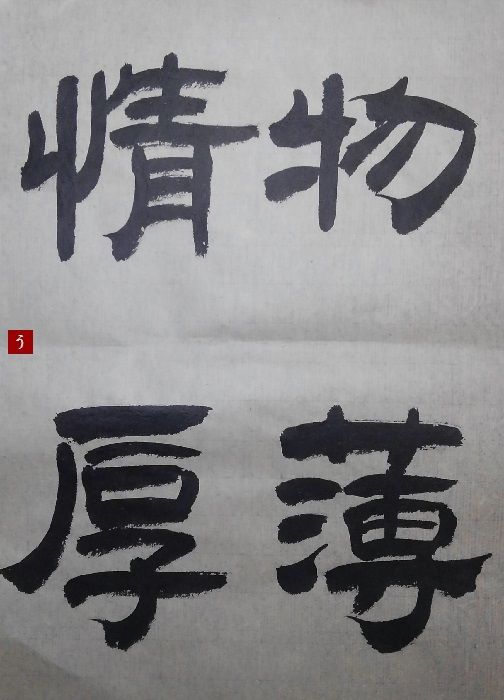 物薄
情厚